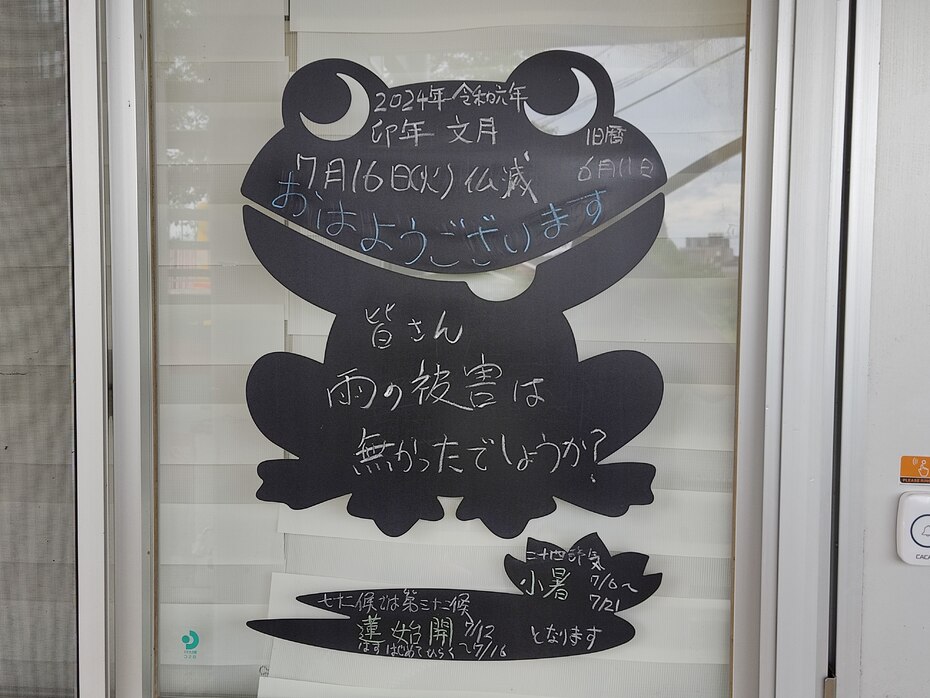 2024年 令和六年
卯年 文月
旧暦
6月11日
7月16日(火)仏滅
おはようございます
皆さん
雨の被害は
無かったでしょうか?
二十四節気
小暑 7/6〜
7/21
七十二候では第三十二候
蓮始開 7/12
はすはじめてひらく 〜7/16
となります